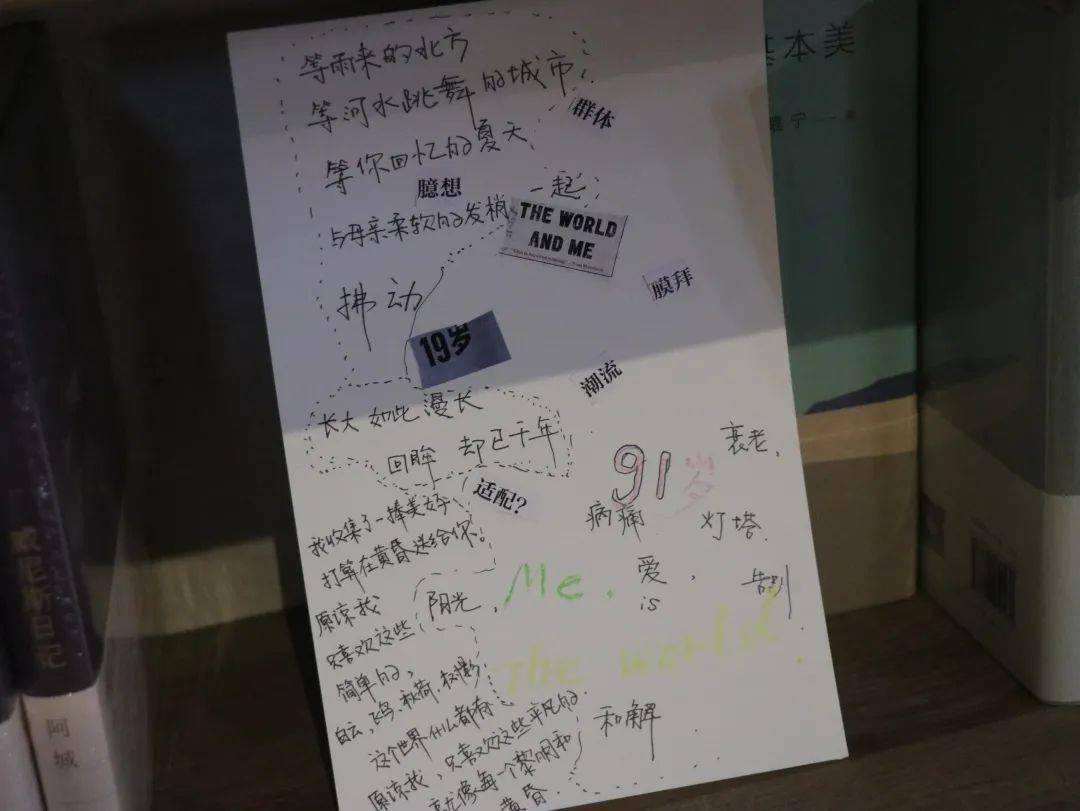 等雨来的北方
等河水跳舞的城市
群体
等你回忆的夏天
臆想
与母亲柔软的发梢一起
THE WORLD
AND ME
拂动
膜拜
19岁
潮流
长大 如此 漫长
回眸 却已千年
适配?
91岁
衰老,
病痛
灯塔
我收集了一捧美好
打算在黄昏送给你。
原谅我
只喜欢这些
阳光,
Me,
爱,
is
告别
The world
简单的,
白云,飞鸟,秋荷,树影
这个世界什么都有
原谅我,只喜欢这些平凡的
就像每一个黎明和
黄昏
和解
基本美
威尼斯日记
阿城